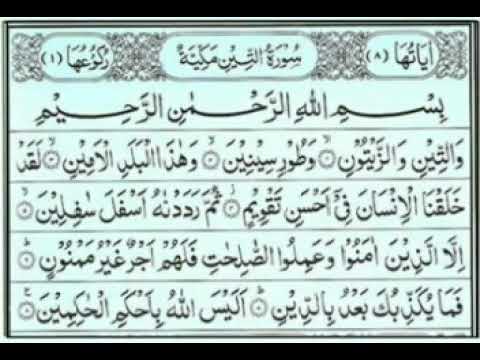 اٰيَاتُهَا (٨) سُوْرَةُ التِّيْنِ مَكِّيَّةٌ رُكُوْعُهَا (١)
بِسْمِ اللهِ الرَّحْمٰنِ الرَّحِيْمِ
وَالتِّيْنِ وَالزَّيْتُوْنِ ۙ وَطُوْرِ سِيْنِيْنَ ۙ وَهٰذَا الْبَلَدِ الْاَمِيْنِ ۙ لَقَدْ
خَلَقْنَا الْاِنْسَانَ فِيْۤ اَحْسَنِ تَقْوِيْمٍ ۙ ثُمَّ رَدَدْنٰهُ اَسْفَلَ سٰفِلِيْنَ ۙ
اِلَّا الَّذِيْنَ اٰمَنُوْا وَعَمِلُوا الصّٰلِحٰتِ فَلَهُمْ اَجْرٌ غَيْرُ مَمْنُوْنٍ ؕ
فَمَا يُكَذِّبُكَ بَعْدُ بِالدِّيْنِ ؕ اَلَيْسَ اللهُ بِاَحْكَمِ الْحٰكِمِيْنَ